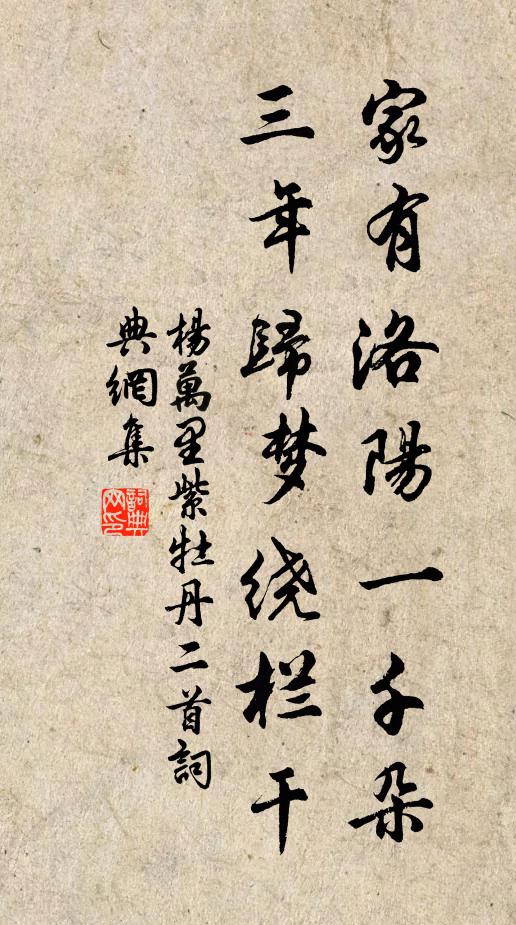 家有洛陽一千朵
三年歸梦绕栏干
楊萬里紫牡丹二首詞
典網集
詞典
网印